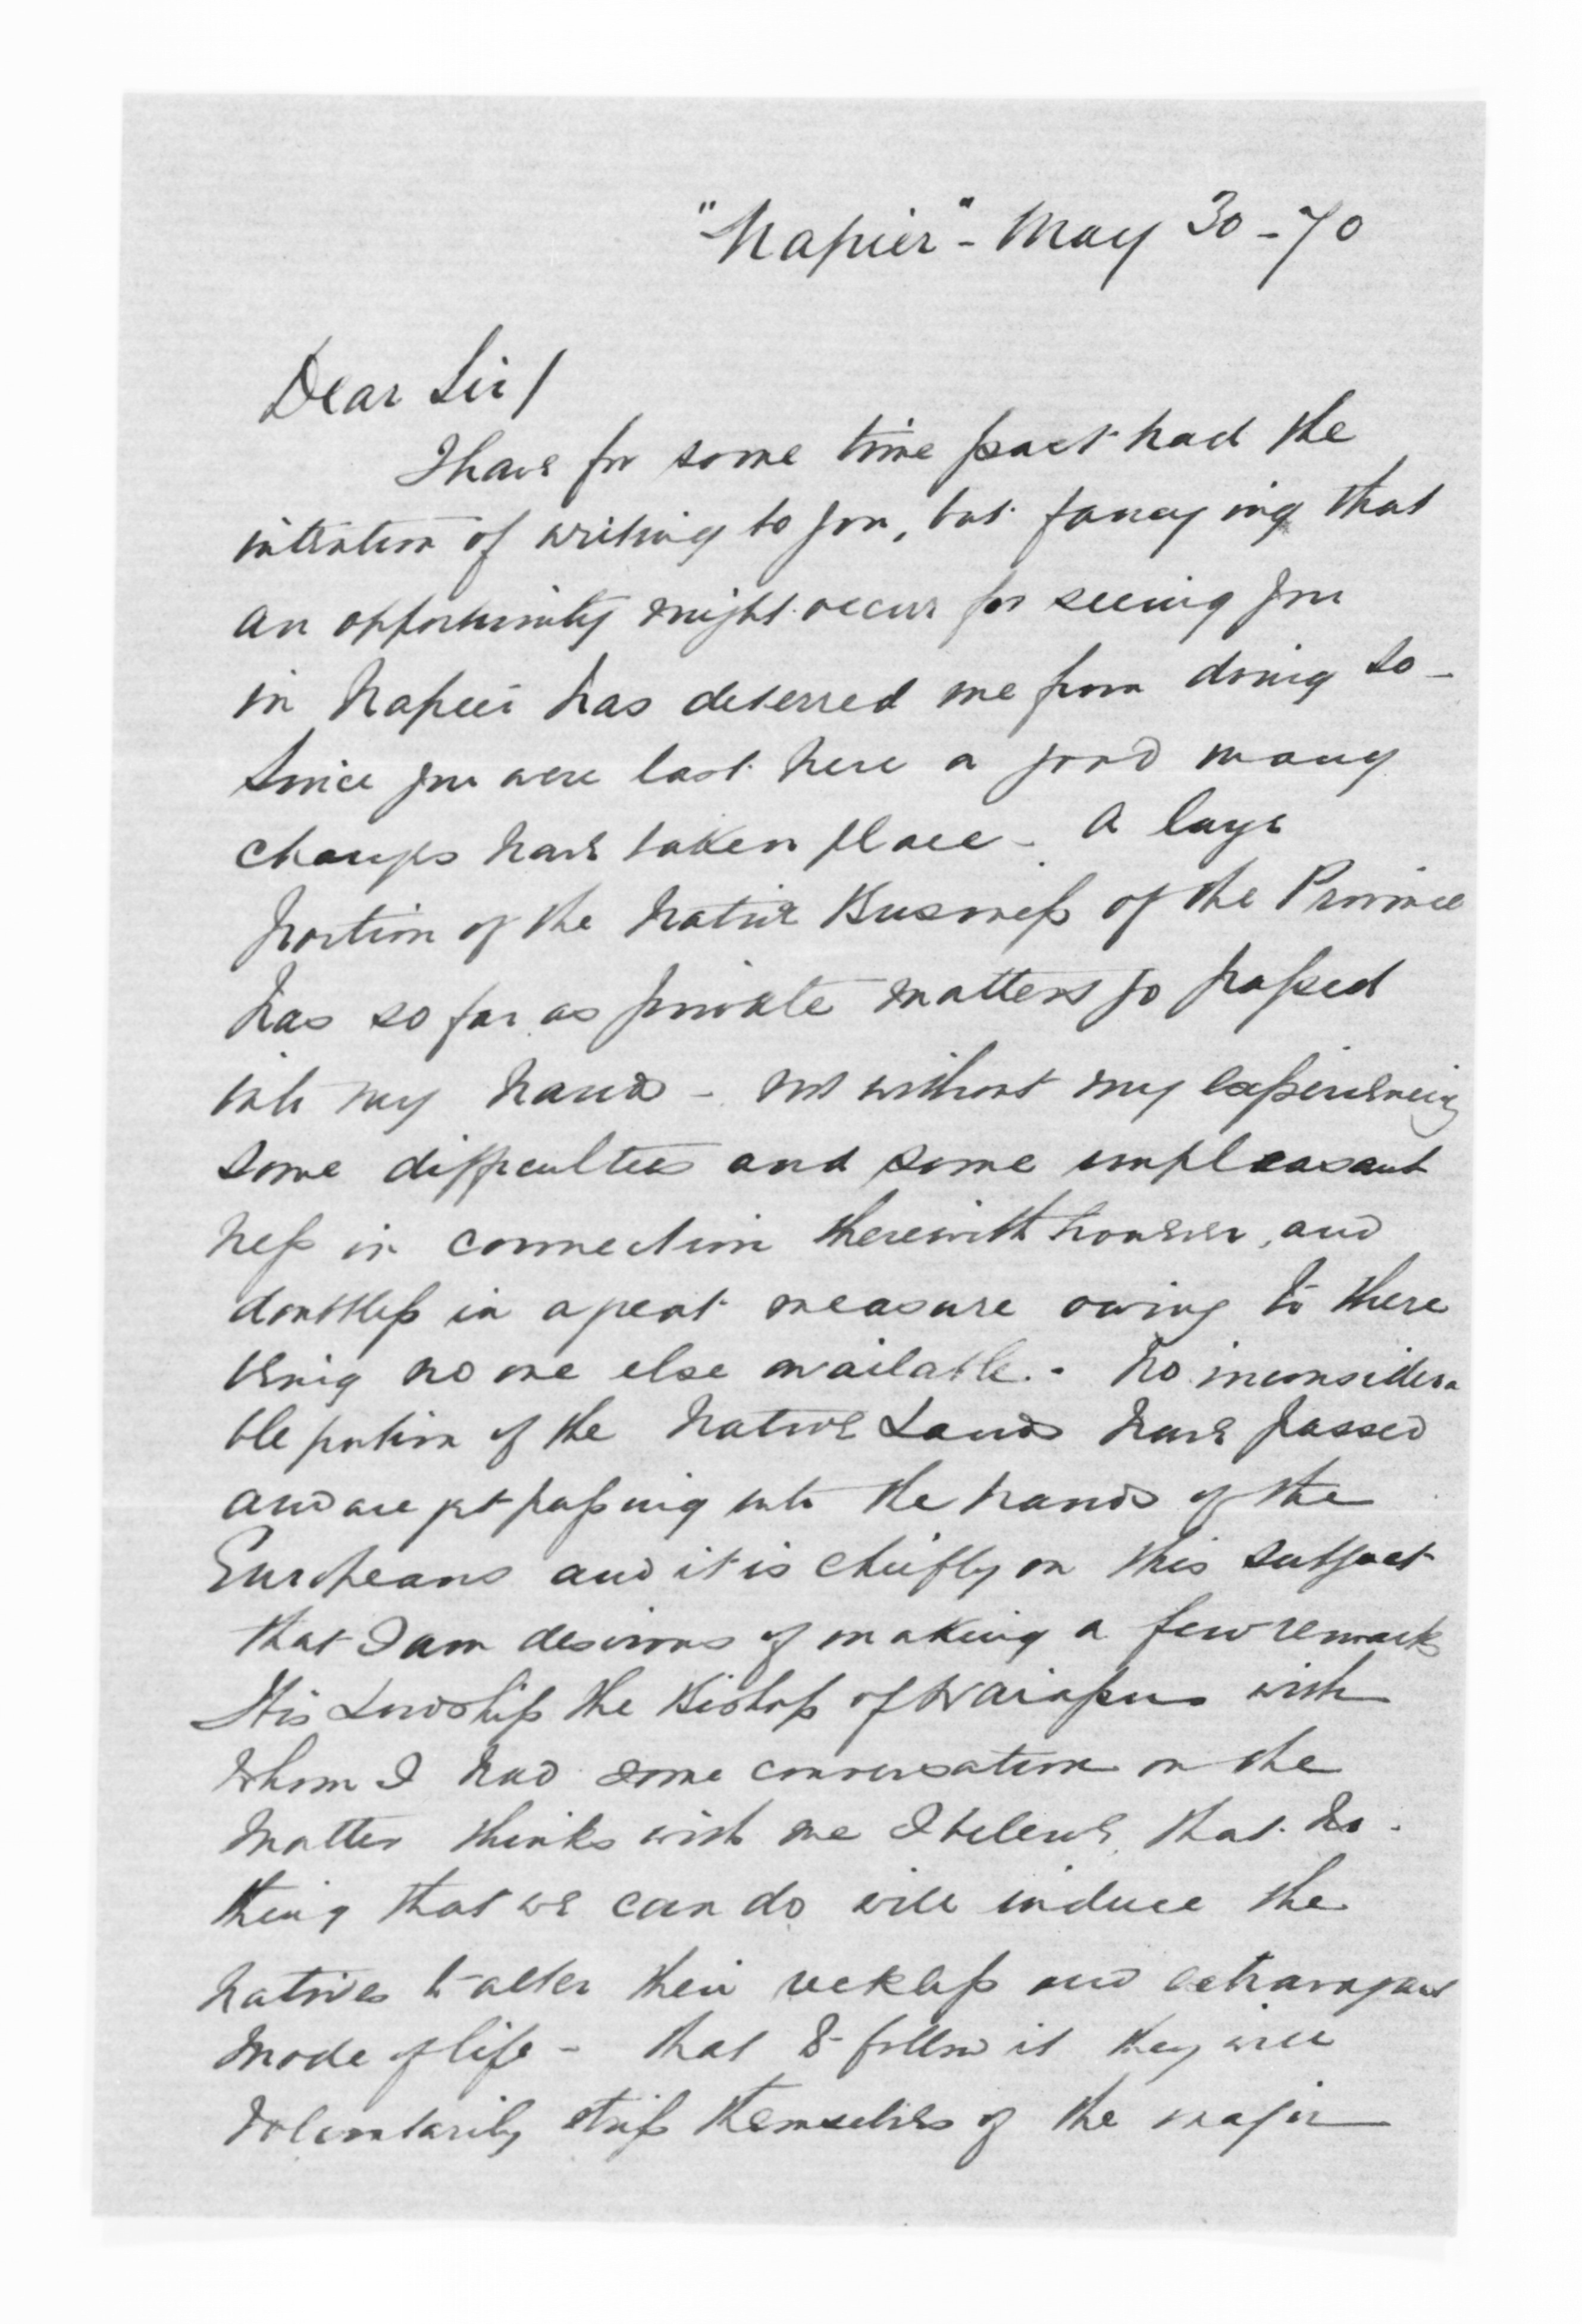 "Napier" - May 30 - 70
Dear Sir/
I have for some time past had the
intention of writing to you, but fancying that
an opportunity might occur for seeing you
in Napier has deterred me from doing so -
Since you were last here a good many
changes have taken place - A large
portion of the Native Business of the Province
has so far as private matters go passed
into my hands - not without my experiencing
some difficulties and some unpleasant
ness in connection therewith however, and
doubtless in a great measure owing to there
being no one else available. - No inconsidera
ble portion of the Native Lands have passed
and are yet passing into the hands of the
Europeans and it is chiefly on this subject
that I am desirous of making a few remarks
His Lordship the Bishop of Waiapu with
whom I had some conversation on the
matter thinks with me I believe, that no-
thing that we can do will induce the
natives to alter their reckless and extravagant
mode of life - that to follow it they will
voluntarily strip themselves of the major